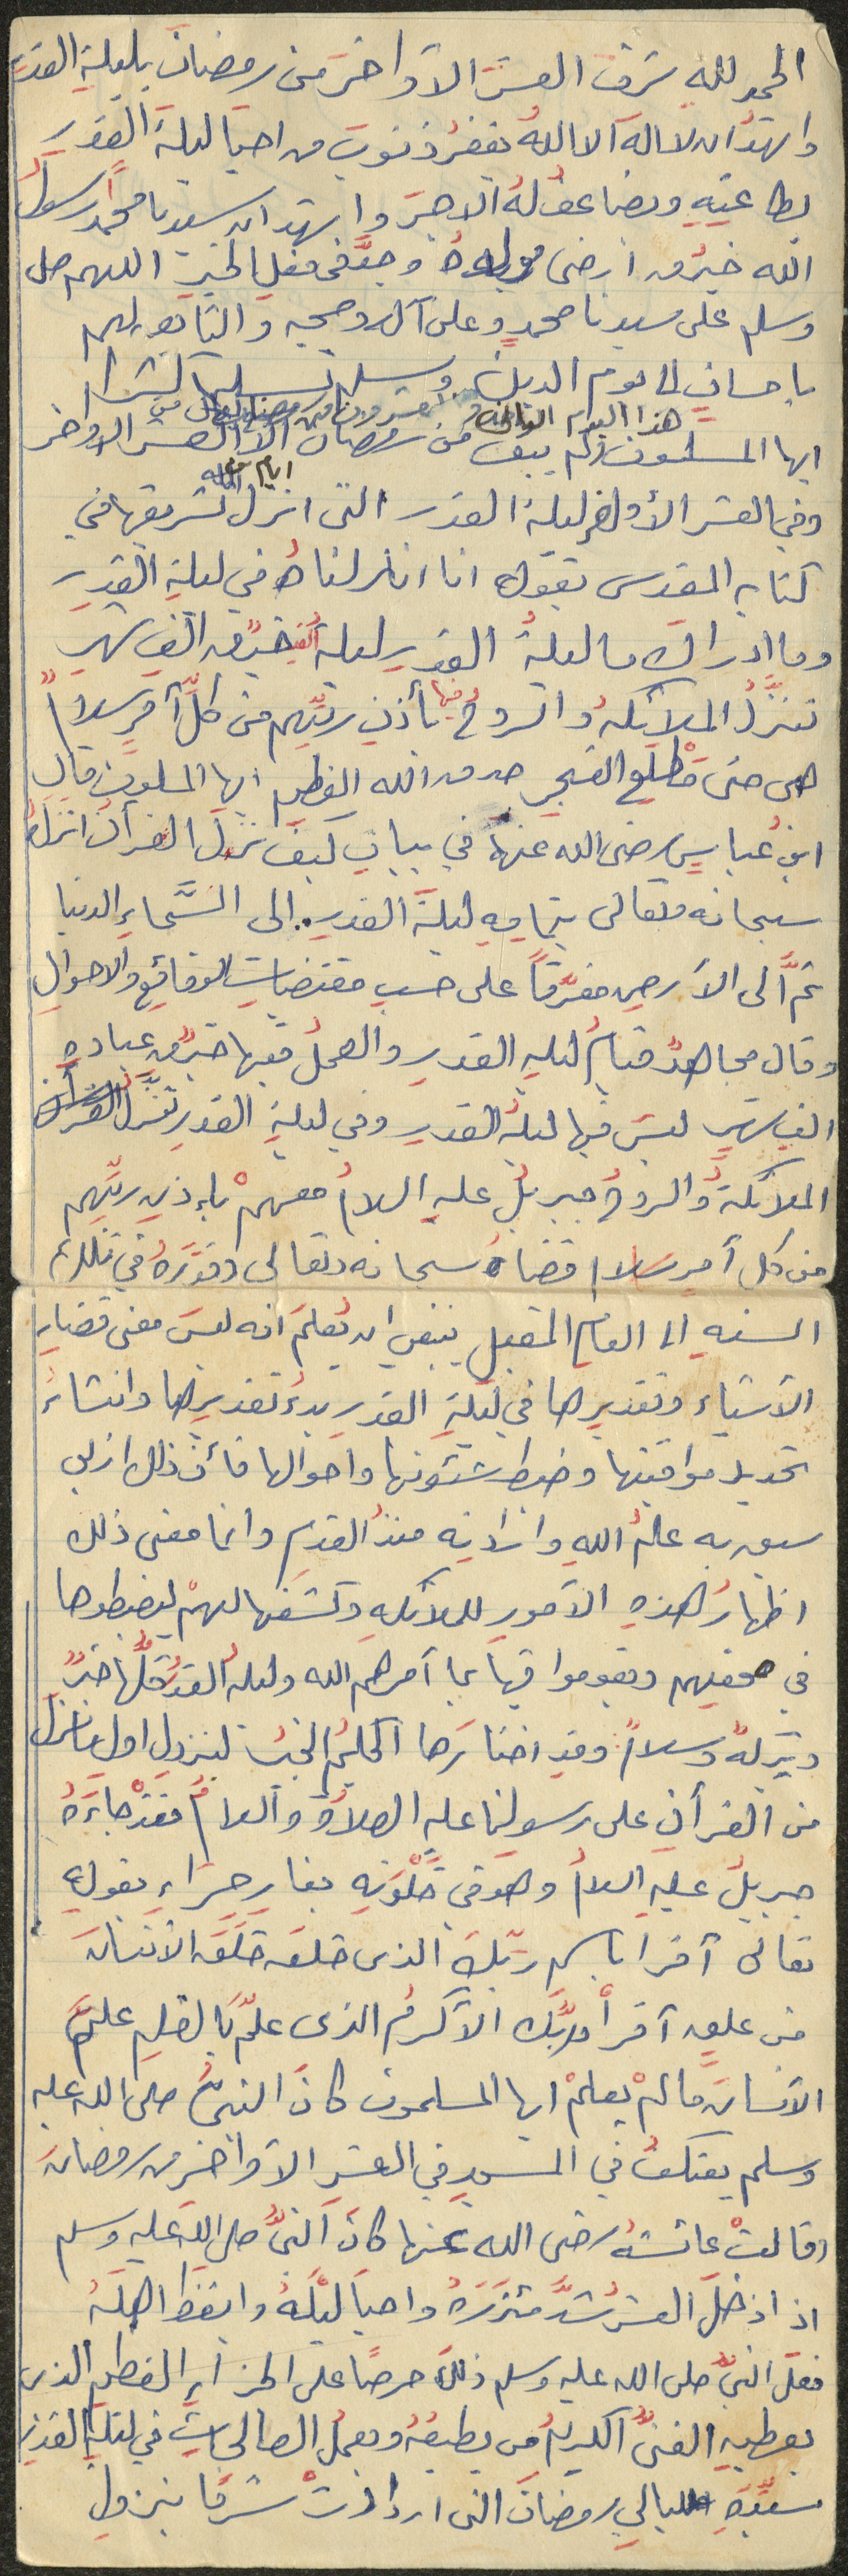 الحمد لله شرف العشر الأواخر من رمضان بليلة القدر
واشهد ان لا اله الا الله يغفر ذنوب من احيا ليلة القدر
بطاعته ويضاعف له الاجر واشهد ان سيدنا محمدا رسول
الله خير من ارضى مولاه وجد في فعل الخير اللهم صل
وسلم على سيدنا محمد وعلى آله وصحبه والتابعين لهم
باحسان الى يوم الدين وسلم تسليما كثيرا
هذا اليوم
ايها المسلمون لم يبق من رمضان الا العشر الاواخر
ايام
وفي العشر الأواخر ليلة القدر التى انزل تشريفها في
كتابه المقدس بقوله انا انزلناه في ليلة القدر
وما ادراك ما ليلة القدر ليلة القدر خير من الف شهر
تنزل الملائكة والروح فيها بأذن ربهم من كل أمر سلام
هى حتى مطلع الفجر صدق الله العظيم ايها المسلمون قال
ابن عباس رضى الله عنهما في بيان كيف نزل القرآن انزله
سبحانه وتعالى بتمامه ليلة القدر الى السماء الدنيا
ثم الى الأرض مفرقا على حسب مقتضيات الوقائع والاحوال
وقال مجاهد قيام ليلة القدر والعمل فيها خير من عبادة
الف شهر ليس فيها ليلة القدر وفي ليلة القدر تنزل
الملائكة والروح جبريل عليه السلام معهم باذن ربهم
من كل أمر سلام قضاه سبحانه وتعالى وقدره في تلك
السنة الى العام المقبل ينبغي ان يعلم انه ليس معنى قضاء
الأشياء وتقديرها في ليلة القدر بدء تقديرها وانشاء
تحديد مواقيتها وضبط شئونها واحوالها فأن ذلك ازلي
سبق به علم الله وارادته منذ القدم وانما معنى ذلك
اظهار هذه الأمور للملائكة وكشفها لهم ليضبطوها
في صحفهم ويقوموا فيها بما أمرهم الله وليلة القدر كلها خير
وبركة وسلام وقد اختارها الحكيم الخبير لنزول اول ما نزل
من القرآن على رسولنا عليه الصلاة والسلام فقد جاءه
جبريل عليه السلام وهو في خلوته بغار حراء بقوله
تعالى أقرا باسم ربك الذى خلق خلق الانسان
من علق أقرأ وربك الأكرم الذى علم بالقلم علم
الانسان ما لم يعلم ايها المسلمون كان النبى صلى الله عليه
وسلم يعتكف في المسجد في العشر الأواخر من رمضان
وقالت عائشة رضى الله عنها كان النبى صلى الله عليه وسلم
اذا دخل العشر شد مئزره واحيا ليله وايقظ اهله
فعل النبى صلى الله عليه وسلم ذلك حرصا على الجزاء العظيم الذى
يعطيه الغنى الكريم من يطيعه ويعمل الصالحات في ليلة القدر
سيدة ليالي رمضان التى ازدادت شرفا بنزول